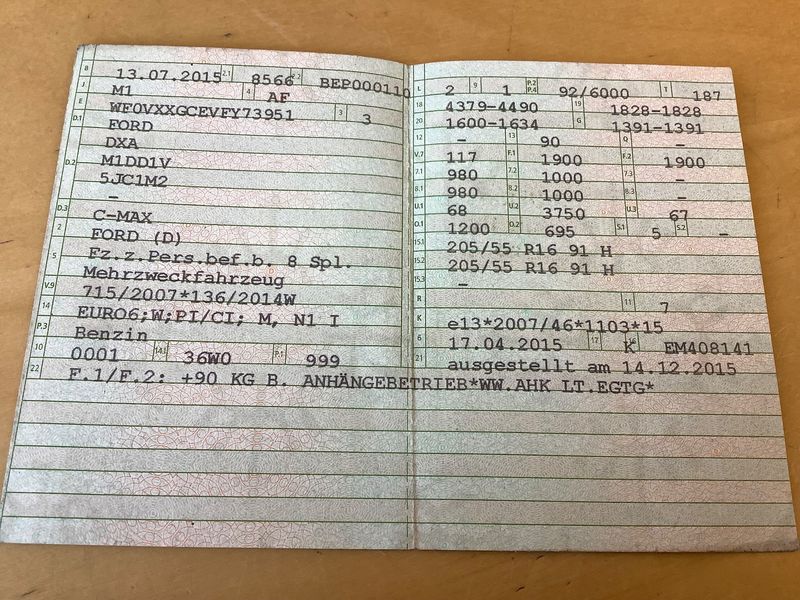 B 13.07.2015 2.1 8566 2.2 BEP000110
J M1 4 AF
E WF0VXXGCEVFY73951 3 3
D.1 FORD
DXA
D.2 M1DD1V
5JC1M2
–
D.3 C-MAX
2 FORD (D)
5 Fz.z.Pers.bef.b. 8 Spl.
Mehrzweckfahrzeug
V.9 715/2007*136/2014W
14 EURO6;W;PI/CI; M, N1 I
P.3 Benzin
10 0001 14.1 36W0 P.1 999
22 F.1/F.2: +90 KG B. ANHÄNGEBETRIEB*WW.AHK LT.EGTG*
L 2 9 1 P.2 P.4 92/6000 T 187
18 4379-4490 19 1828-1828
20 1600-1634 G 1391-1391
12 – 13 90 Q –
V.7 117 F.1 1900 F.2 1900
7.1 980 7.2 1000 7.3 –
8.1 980 8.2 1000 8.3 –
U.1 68 U.2 3750 U.3 67
O.1 1200 O.2 695 S.1 5 S.2 –
15.1 205/55 R16 91 H
15.2 205/55 R16 91 H
15.3 –
R 11 7
K e13*2007/46*1103*15
6 17.04.2015 17 K 16 EM408141
21 ausgestellt am 14.12.2015